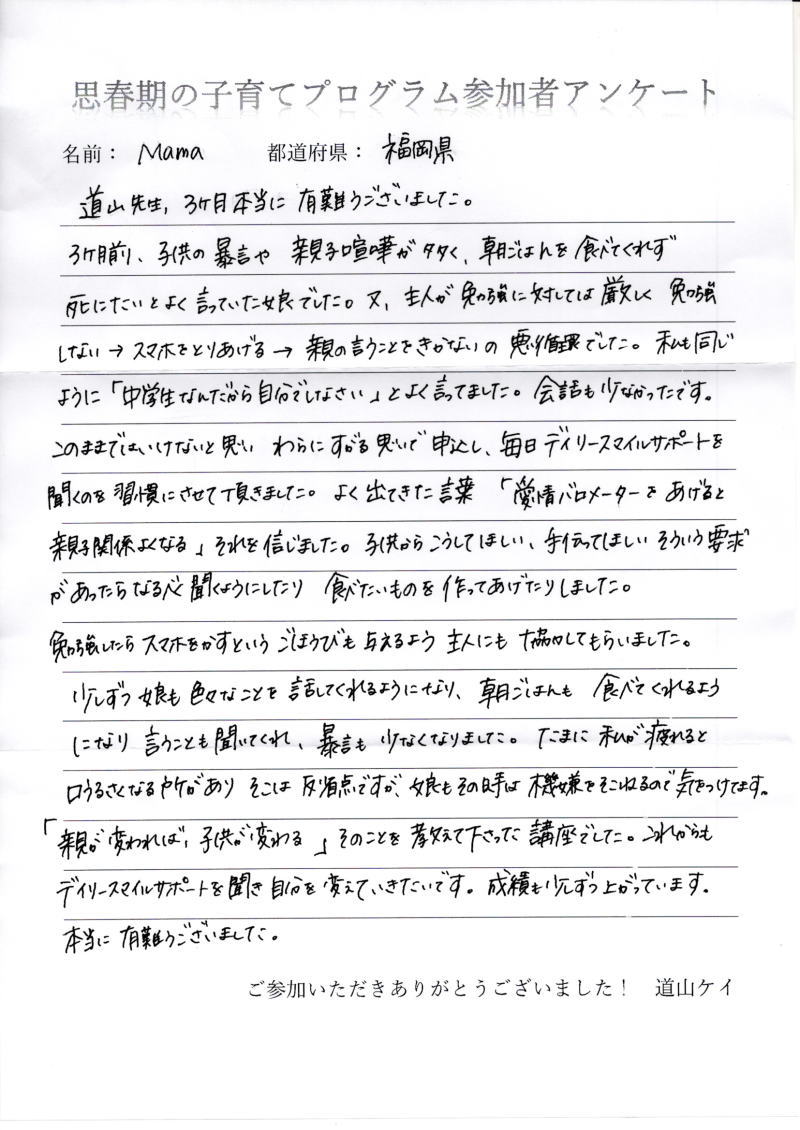 思春期の子育てプログラム参加者アンケート
名前： Mama 都道府県： 福岡県
道山先生, 3ケ月本当に 有難うございました。
3ケ月前、子供の 暴言や 親子喧嘩が多く、朝ごはんを 食べてくれず
死にたいとよく言っていた娘でした。又、主人が 勉強に対しては 厳しく 勉強
しない→スマホをとりあげる→親の言うことをきかないの 悪循環でした。私も同じ
ように「中学生なんだから自分でしなさい」とよく言ってました。会話も少なかったです。
このままではいけないと思い わらにすがる思いで 申込し、毎日デイリースマイルサポートを
聞くのを習慣にさせて頂きました。よく出てきた言葉 「愛情バロメーターをあげると
親子関係よくなる」それを信じました。子供からこうしてほしい、手伝ってほしい そういう要求
があったらなるべく聞くようにしたり 食べたいものを 作ってあげたりしました。
勉強したらスマホをかすという ごほうびも 与えるよう 主人にも 協力してもらいました。
少しずつ娘も色々なことを話してくれるようになり、朝ごはんも 食べてくれるよう
になり 言うことも聞いてくれ、暴言も 少なくなりました。たまに 私が疲れると
口うるさくなる時があり そこは 反省点ですが、娘もその時は 機嫌をそこねるので気をつけてます。
「親が変われば, 子供が変わる」そのことを教えて下さった講座でした。これからも
デイリースマイルサポートを聞き自分を変えていきたいです。成績も少しずつ上がっています。
本当に 有難うございました。
ご参加いただきありがとうございました！ 道山ケイ